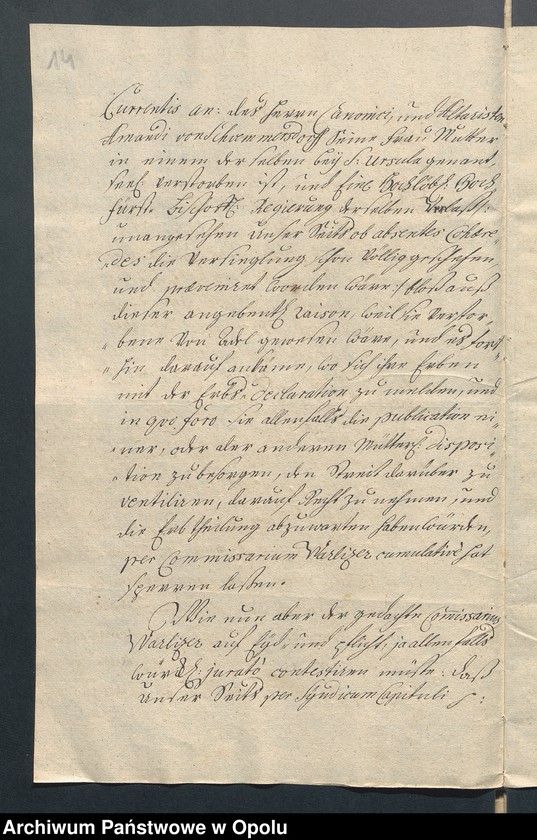 14
Currentis an: des Herrn Canonici, und Altaristen
Amandi von Schwemmersdorff seine Frau Mutter
in einem derselben beÿ S: Ursula genant,
seel: verstorben ist, und Eine Hochlöbl: Hoch
fürst: Bischoffl: Regierung derselben Verlass:
unangesehen Unser Seits ob absentes Cohære-
des die Versieglung schon völlig geschehen,
und præveniret worden wäre: / bloß auß
dieser angebentl: raison, weil sie verstor-
bene von Adel gewesen wäre, und es fort-
hin darauf ankäme, wo sich ihre Erben
mit der Erbs-Declaration zu melden, und
in quo foro sie allenfalls die publication ei-
ner, oder der anderen Mütterl: Disposi-
tion zu besorgen, den Streit darüber zu
ventiliren, darauf Recht zu nehmen, und
die Erbtheilung abzuwarten haben würden,
per Commissarium Warlizer cumulativè hat
sperren laßen.
Wie nun aber der gedachte Commissarius
Warlizer auf Eÿd, und Pflicht, ja allenfalls
jurató contestiren müste: daß
Unser Seits per Syndicum Capituli
Archiwum Państwowe w Opolu